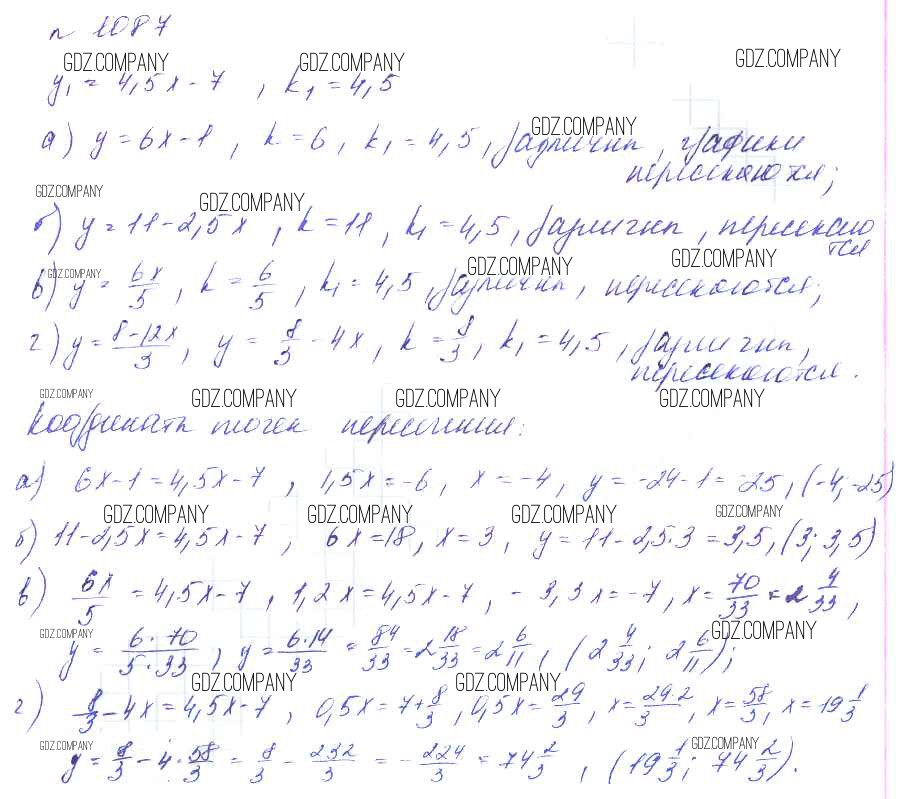 n 1087
GDZ.COMPANY GDZ.COMPANY GDZ.COMPANY
y₁ = 4,5x - 7 , k₁ = 4,5
GDZ.COMPANY
а) y = 6x - 1 , k = 6 , k₁ = 4,5 , различны , графики
пересекаются;
GDZ.COMPANY GDZ.COMPANY
б) y = 11 - 2,5x , k = 11 , k₁ = 4,5 , различны , пересекаю
тся
GDZ.COMPANY GDZ.COMPANY GDZ.COMPANY
в) y = 6x/5 , k = 6/5 , k₁ = 4,5 , различны , пересекаются;
г) y = 8-12x/3 , y = 8/3 - 4x , k = 8/3 , k₁ = 4,5 , различны ,
пересекаются.
GDZ.COMPANY GDZ.COMPANY GDZ.COMPANY GDZ.COMPANY
Координаты точек пересечения:
а) 6x - 1 = 4,5x - 7 , 1,5x = -6 , x = -4 , y = -24 - 1 = -25 , (-4; -25)
GDZ.COMPANY GDZ.COMPANY GDZ.COMPANY GDZ.COMPANY
б) 11 - 2,5x = 4,5x - 7 , 6x = 18 , x = 3 , y = 11 - 2,5·3 = 3,5 , (3; 3,5)
в) 6x/5 = 4,5x - 7 , 1,2x = 4,5x - 7 , -3,3x = -7 , x = 70/33 = 2 4/33 ,
GDZ.COMPANY GDZ.COMPANY
y = 6·70/5·33 , y = 6·14/33 = 84/33 = 2 18/33 = 2 6/11 , (2 4/33; 2 6/11);
GDZ.COMPANY GDZ.COMPANY
г) 8/3 - 4x = 4,5x - 7 , 0,5x = 7 + 8/3 , 0,5x = 29/3 , x = 29·2/3 , x = 58/3 , x = 19 1/3
GDZ.COMPANY GDZ.COMPANY
y = 8/3 - 4·58/3 = 8/3 - 232/3 = - 224/3 = 74 2/3 , (19 1/3; 74 2/3).